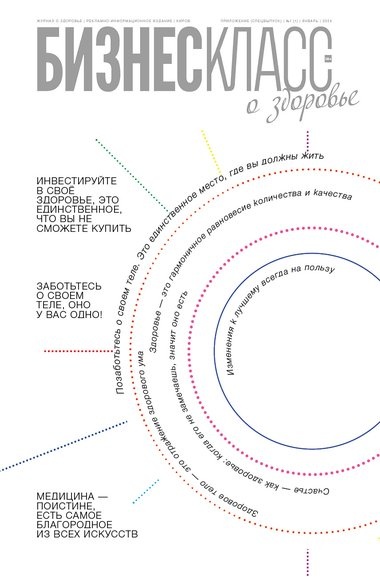 ЖУРНАЛ О ЗДОРОВЬЕ | РЕКЛАМНО-ИНФОРМАЦИОННОЕ ИЗДАНИЕ | КИРОВ
ПРИЛОЖЕНИЕ (СПЕЦВЫПУСК) | №1 (1) | ЯНВАРЬ |
БИЗНЕСКЛАСС
о здоровье
ИНВЕСТИРУЙТЕ
В СВОЁ
ЗДОРОВЬЕ, ЭТО
ЕДИНСТВЕННОЕ,
ЧТО ВЫ НЕ
СМОЖЕТЕ КУПИТЬ
ЗАБОТЬТЕСЬ
О СВОЕМ
ТЕЛЕ, ОНО
У ВАС ОДНО!
МЕДИЦИНА —
ПОИСТИНЕ,
ЕСТЬ САМОЕ
БЛАГОРОДНОЕ
ИЗ ВСЕХ ИСКУССТВ
Позаботьтесь о своем теле. Это единственное место, где вы должны жить
Здоровье — это гармоничное равновесие количества и качества
Изменения к лучшему всегда на пользу
Счастье — как здоровье: когда его не замечаешь, значит оно есть
Здоровое тело — это отражение здорового ума